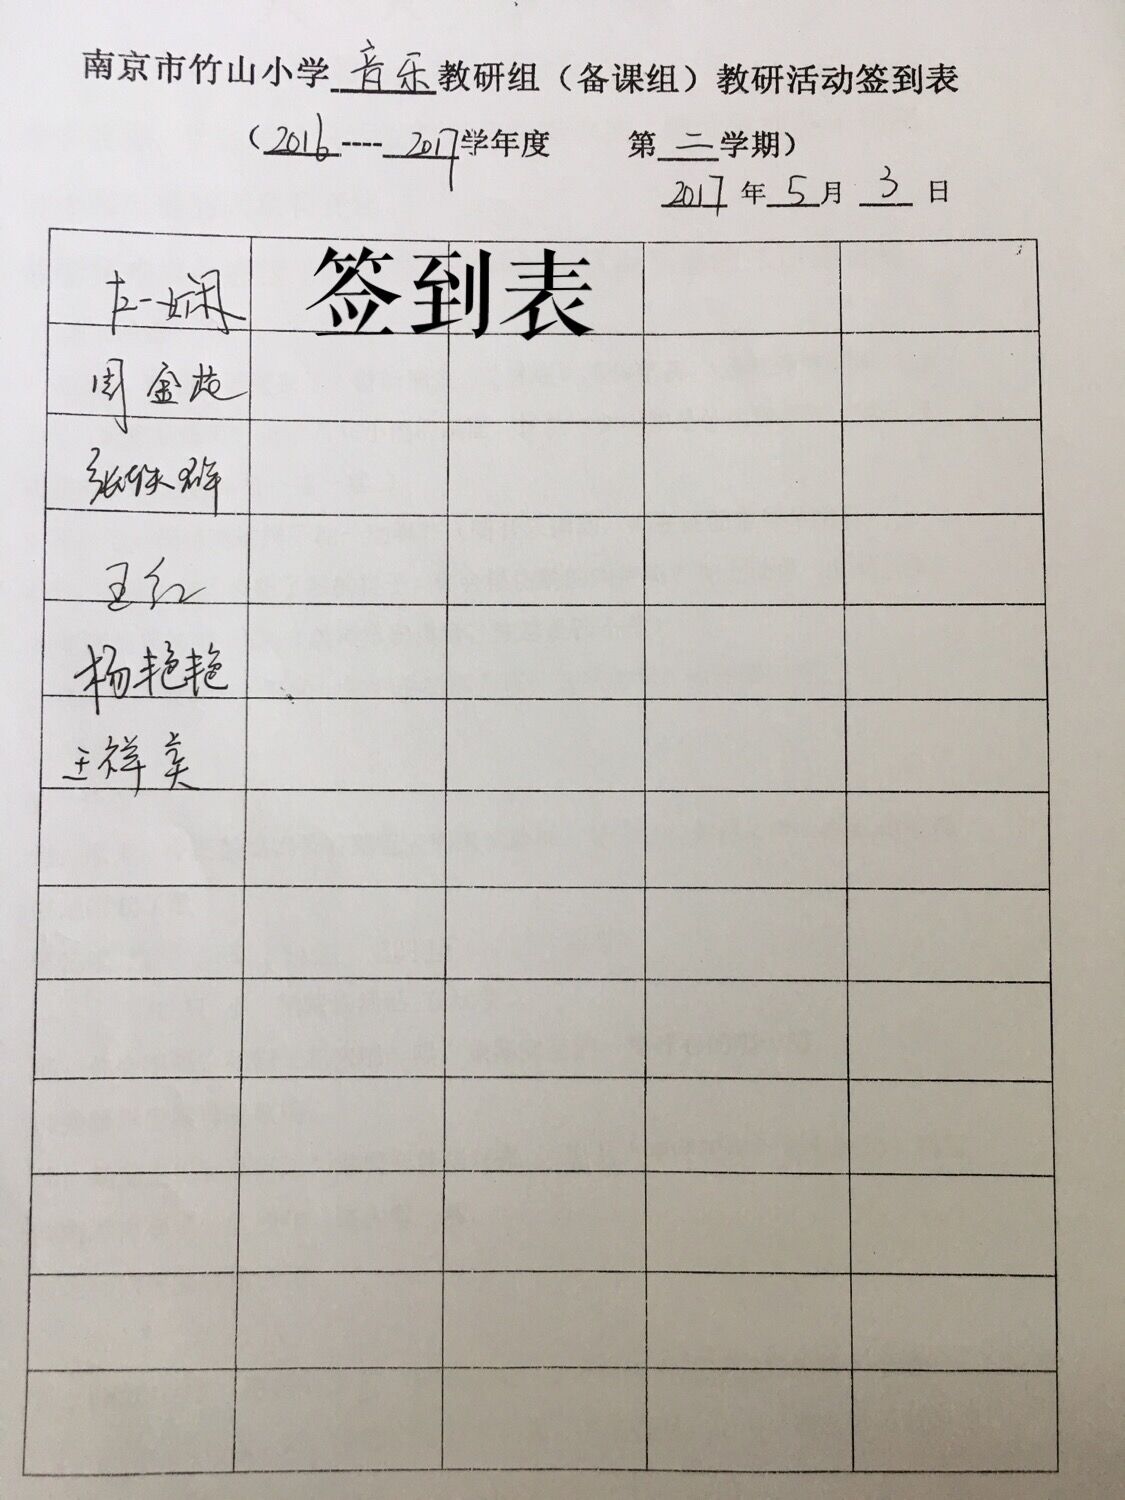 南京市竹山小学 音乐 教研组（备课组）教研活动签到表
（2016----2017学年度 第二学期）
2017 年 5 月 3 日
签到表
周金苑
王红
杨艳艳
王祥英